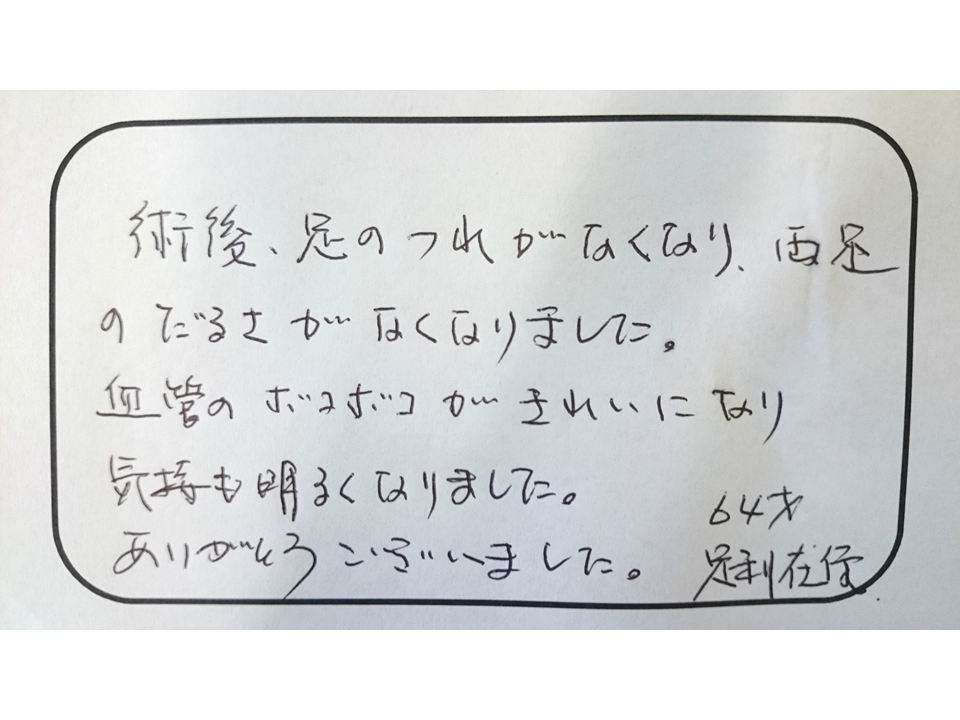 術後、足のつれがなくなり、両足
のだるさがなくなりました。
血管のボコボコがきれいになり
気持も明るくなりました。
ありがとうございました。
64才
足利在住